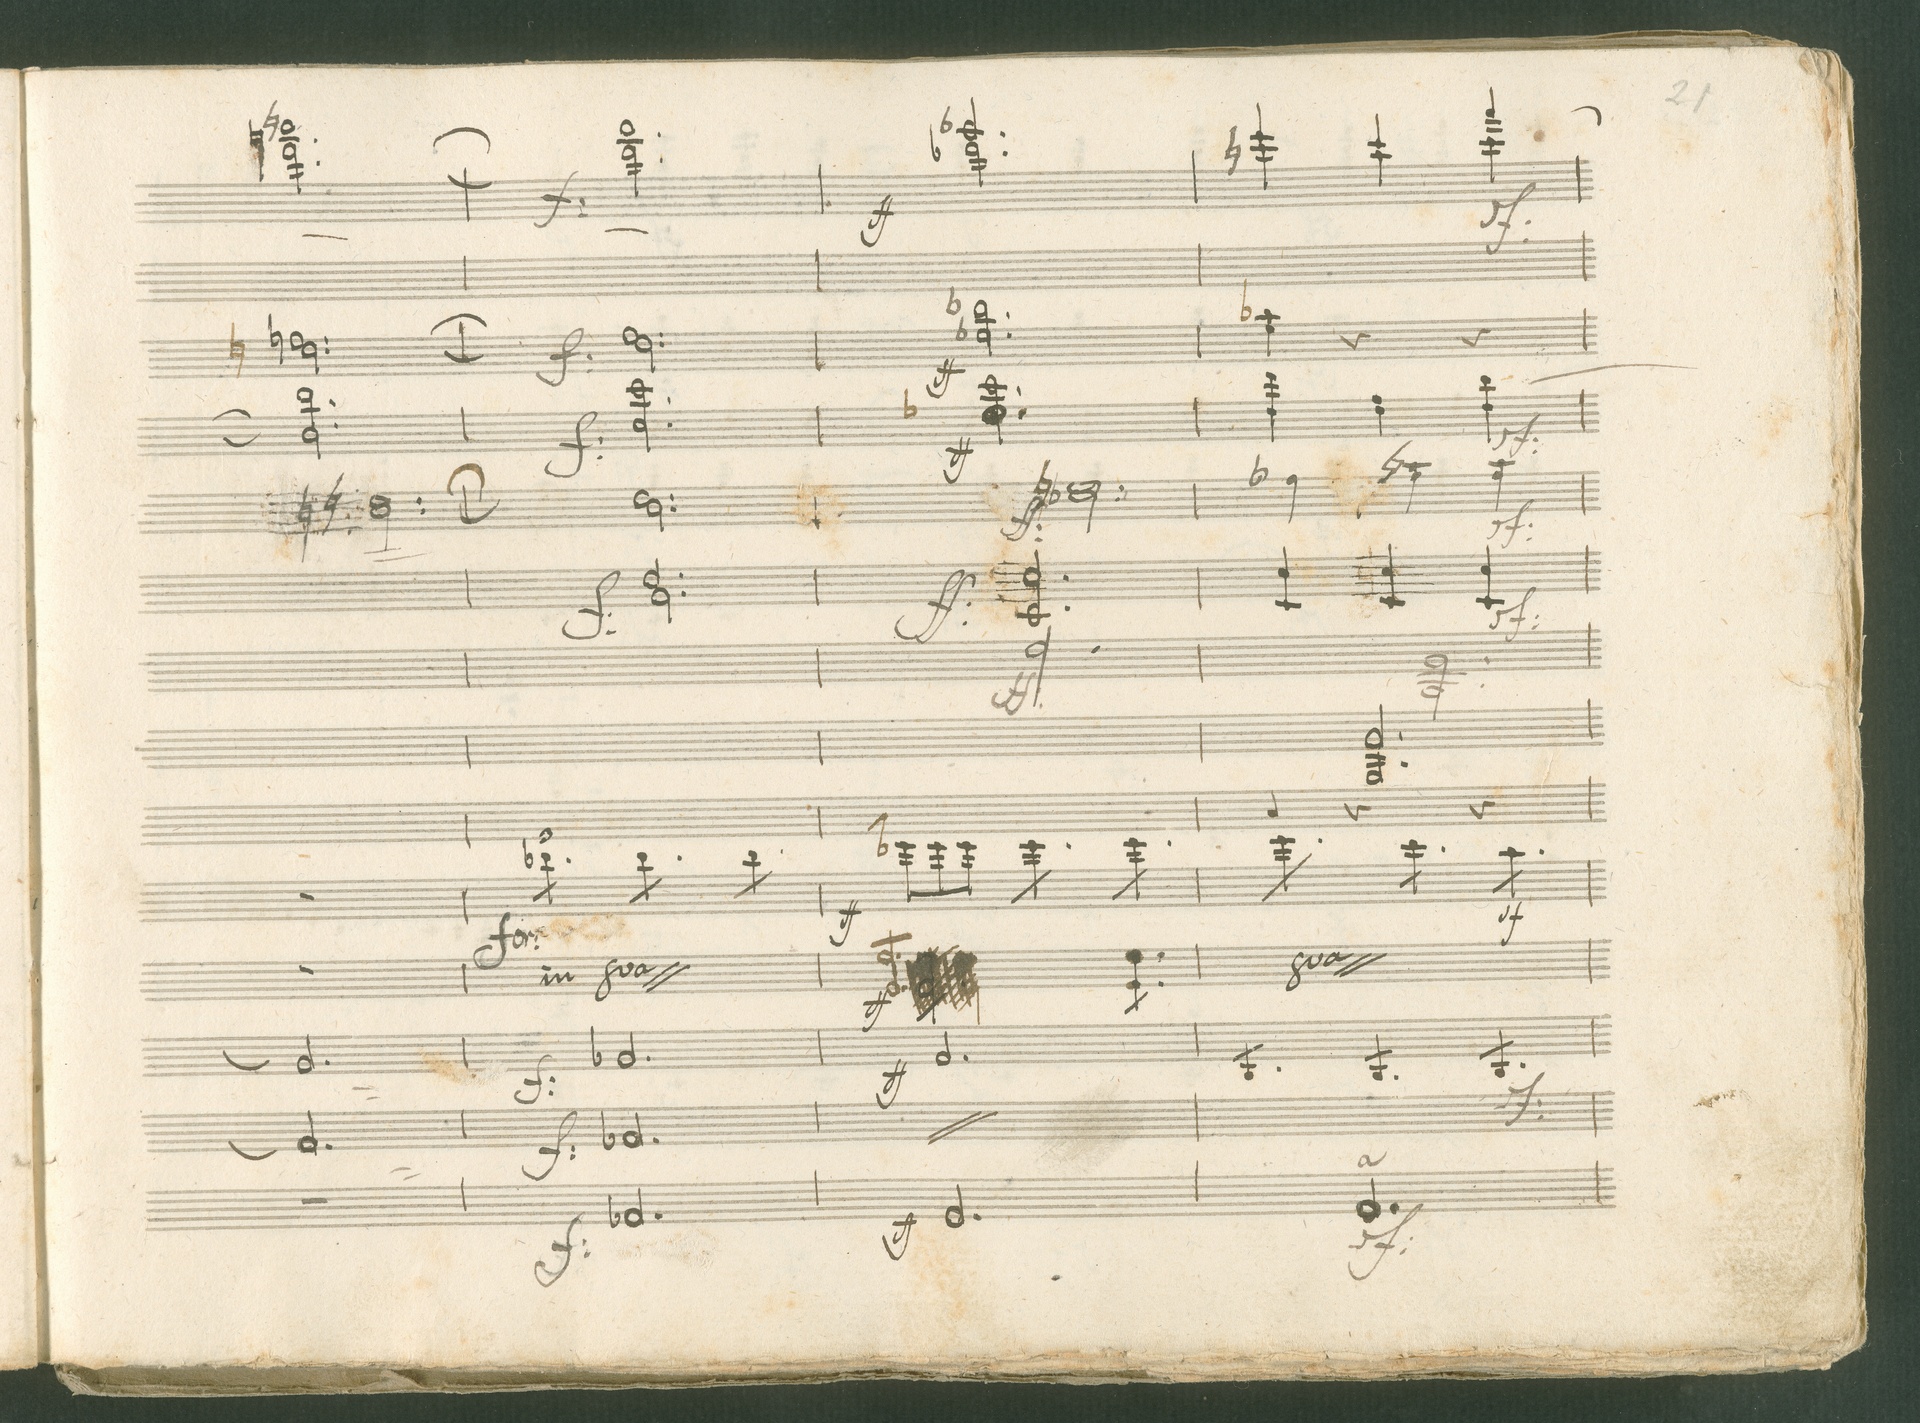 21
f: ff sf:
f: ff
f: ff sf:
f: sf:
f: ff. sf:
ff
for: ff sf
in 8va ff 8va
f: ff sf:
f:
a
f: ff sf: